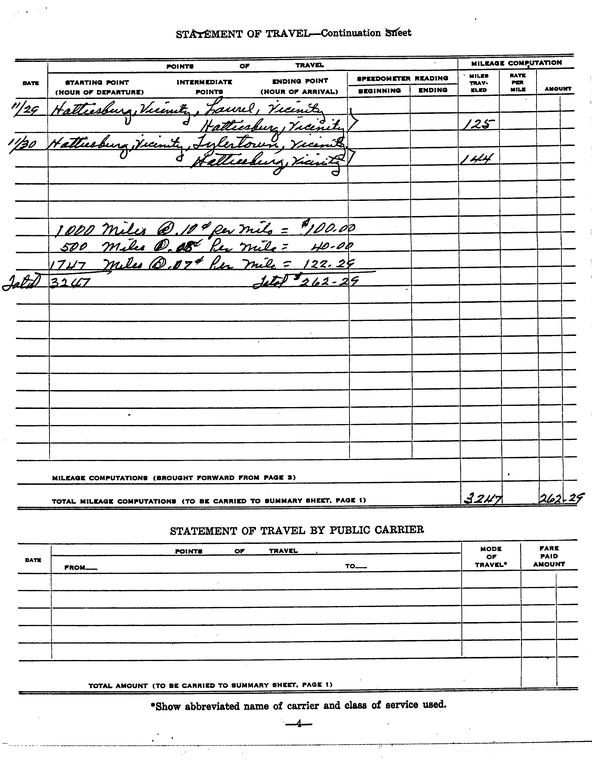 STATEMENT OF TRAVEL—Continuation Sheet
POINTS OF TRAVEL
MILEAGE COMPUTATION
DATE
STARTING POINT (HOUR OF DEPARTURE)
INTERMEDIATE POINTS
ENDING POINT (HOUR OF ARRIVAL)
SPEEDOMETER READING
BEGINNING
ENDING
MILES TRAV-ELED
RATE PER MILE
AMOUNT
11/29 Hattiesburg, Vicinity, Laurel, Vicinity
Hattiesburg, Vicinity 125
11/30 Hattiesburg, Vicinity, Tylertown, Vicinity
Hattiesburg, Vicinity 144
1000 Miles @ .10¢ per mile = $100.00
500 Miles @ .08¢ Per Mile = 40.00
1747 Miles @ .07¢ Per Mile = 122.29
Total 3247 Total $262-29
MILEAGE COMPUTATIONS (BROUGHT FORWARD FROM PAGE 3)
TOTAL MILEAGE COMPUTATIONS (TO BE CARRIED TO SUMMARY SHEET, PAGE 1) 3247 262-29
STATEMENT OF TRAVEL BY PUBLIC CARRIER
DATE
POINTS OF TRAVEL
FROM
TO
MODE OF TRAVEL*
FARE PAID AMOUNT
TOTAL AMOUNT (TO BE CARRIED TO SUMMARY SHEET, PAGE 1)
*Show abbreviated name of carrier and class of service used.
—4—